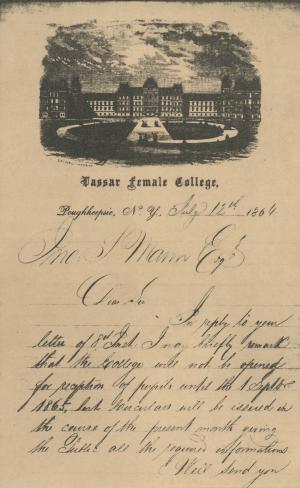 Vassar Female College,
Poughkeepsie, N. Y. July 12th 1864
Jno. S Mann Esq
Dear Sir
In reply to your
letter of 8th Inst I may briefly remark
that the College will not be opened
for reception of pupils until the 1 Septbr
1865, but Circulars will be issued in
the course of the present month giving
the Public all the required informations
We'll send you